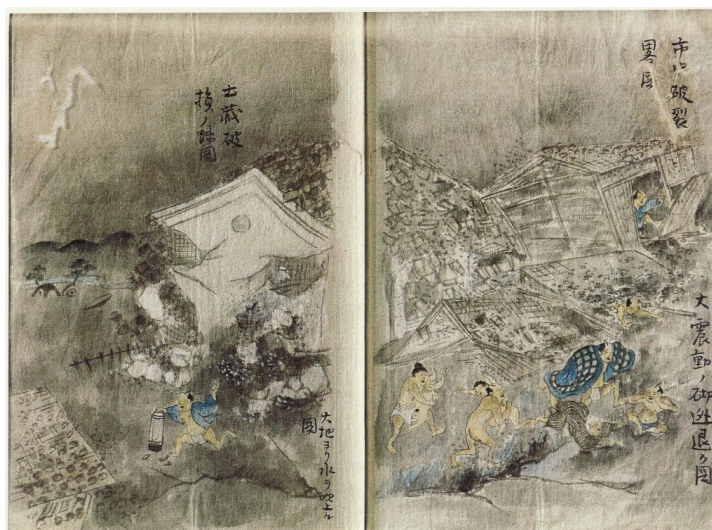 市中破裂
畧図
大震動ノ砌迯退ク図
土蔵破
損ノ畧図
大地ヨリ水ヲ吹上ル
図